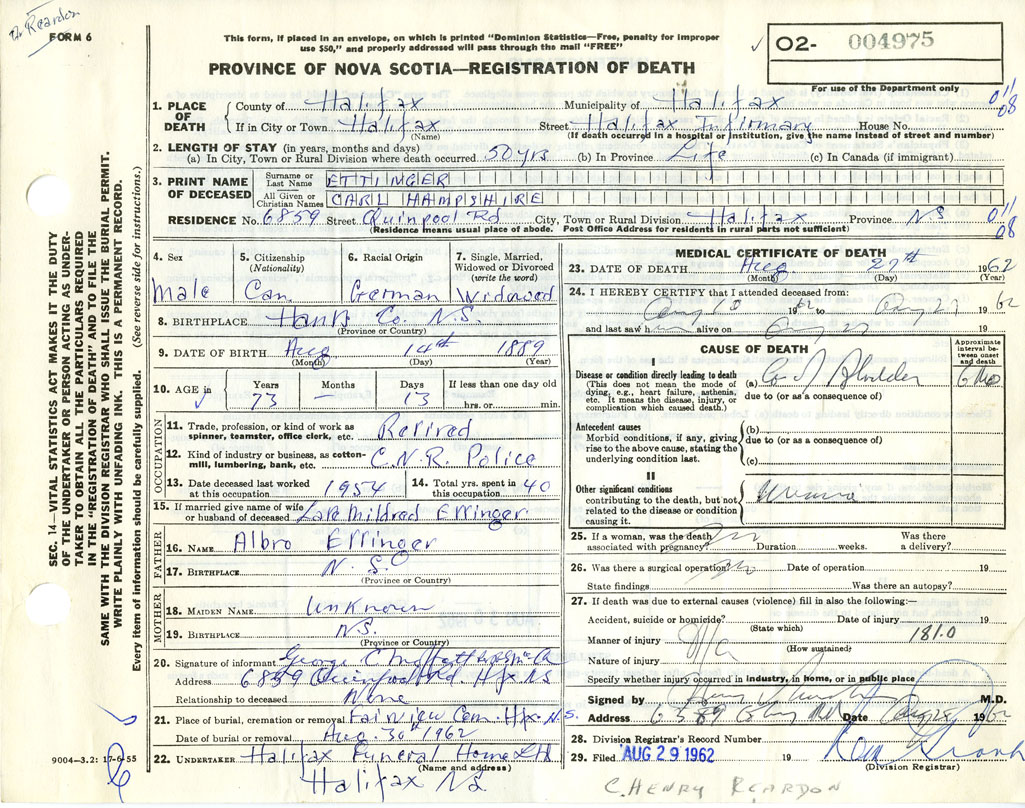 Dr Reardon
FORM 6
This form, if placed in an envelope, on which is printed "Dominion Statistics—Free, penalty for improper
use $50," and properly addressed will pass through the mail "FREE"
02- 004975
PROVINCE OF NOVA SCOTIA—REGISTRATION OF DEATH
For use of the Department only
011
08
1. PLACE OF DEATH County of Halifax Municipality of Halifax
If in City or Town Halifax Street Halifax Infirmary House No.
(Name) (If death occurred in a hospital or institution, give the name instead of street and number)
2. LENGTH OF STAY (in years, months and days)
(a) In City, Town or Rural Division where death occurred 50 yrs (b) In Province Life (c) In Canada (if immigrant)
3. PRINT NAME OF DECEASED
Surname or Last Name ETTINGER
All Given or Christian Names CARL HAMPSHIRE
RESIDENCE No. 6859 Street Quinpool Rd City, Town or Rural Division Halifax Province NS
(Residence means usual place of abode. Post Office Address for residents in rural parts not sufficient)
011
08
4. Sex Male
5. Citizenship (Nationality) Can.
6. Racial Origin German
7. Single, Married, Widowed or Divorced (write the word) Widowed
8. BIRTHPLACE Hants Co. N.S.
(Province or Country)
9. DATE OF BIRTH Aug 14th 1889
(Month) (Day) (Year)
10. AGE in Years Months Days If less than one day old
73 — 13 hrs. or min.
OCCUPATION
11. Trade, profession, or kind of work as spinner, teamster, office clerk, etc. Retired
12. Kind of industry or business, as cotton-mill, lumbering, bank, etc. C.N.R. Police
13. Date deceased last worked at this occupation 1954
14. Total yrs. spent in this occupation 40
15. If married give name of wife or husband of deceased Late Mildred Ettinger
FATHER
16. NAME Albro Ettinger
17. BIRTHPLACE N.S.
(Province or Country)
MOTHER
18. MAIDEN NAME Unknown
19. BIRTHPLACE NS.
(Province or Country)
20. Signature of informant George C
Address 6859 Quinpool Rd. Hfx NS
Relationship to deceased None
21. Place of burial, cremation or removal Fairview Cem. Hfx N.S.
Date of burial or removal Aug. 30th 1962
22. UNDERTAKER Halifax Funeral Home Ltd
(Name and address)
Halifax NS
9004—3.2: 17-6-55
SEC. 14—VITAL STATISTICS ACT MAKES IT THE DUTY
OF THE UNDERTAKER OR PERSON ACTING AS UNDER-
TAKER TO OBTAIN ALL THE PARTICULARS REQUIRED
IN THE "REGISTRATION OF DEATH" AND TO FILE THE
SAME WITH THE DIVISION REGISTRAR WHO SHALL ISSUE THE BURIAL PERMIT.
WRITE PLAINLY WITH UNFADING INK. THIS IS A PERMANENT RECORD.
Every item of information should be carefully supplied. (See reverse side for instructions.)
MEDICAL CERTIFICATE OF DEATH
23. DATE OF DEATH Aug 27th 1962
(Month) (Day) (Year)
24. I HEREBY CERTIFY that I attended deceased from:
Aug 1962 to Aug 27 1962
and last saw him alive on Aug 27 19
CAUSE OF DEATH
Approximate interval between onset and death
I
Disease or condition directly leading to death
(This does not mean the mode of dying, e.g., heart failure, asthenia, etc. It means the disease, injury, or complication which caused death.)
(a) Ca of Bladder 6 Mo
due to (or as a consequence of)
Antecedent causes
Morbid conditions, if any, giving rise to the above cause, stating the underlying condition last.
(b)
due to (or as a consequence of)
(c)
II
Other significant conditions
contributing to the death, but not related to the disease or condition causing it.
Uremia
25. If a woman, was the death associated with pregnancy? Duration weeks. Was there a delivery?
26. Was there a surgical operation? Date of operation 19
State findings Was there an autopsy?
27. If death was due to external causes (violence) fill in also the following:—
Accident, suicide or homicide? Date of injury 19
(State which) 181.0
Manner of injury
(How sustained)
Nature of injury
Specify whether injury occurred in industry, in home, or in public place
Signed by M.D.
Address 6389 Date Aug 28 1962
28. Division Registrar's Record Number
29. Filed AUG 29 1962 19
(Division Registrar)
C. HENRY REARDON